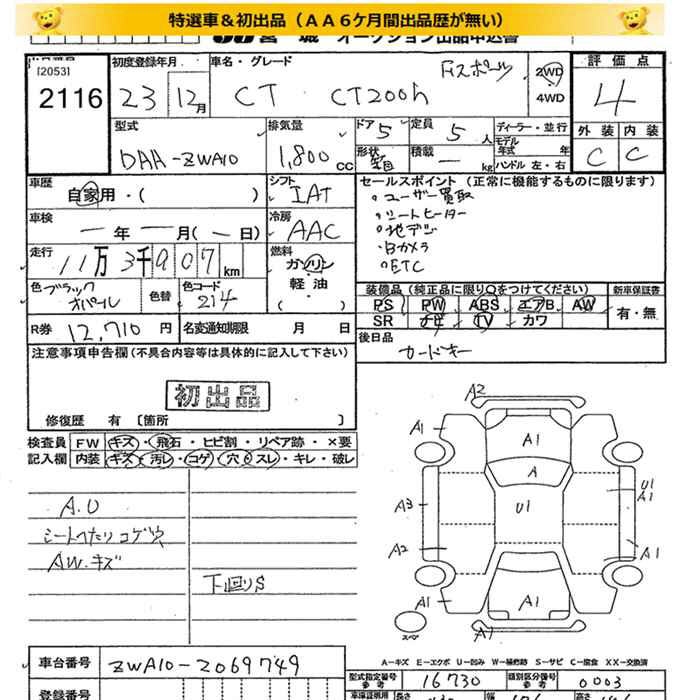 特選車＆初出品（ＡＡ６ケ月間出品歴が無い）
宮城 オークション出品申込書
[2053]
2116
初度登録年月
23 12月
車名・グレード
Fスポーツ
CT CT200h
2WD
4WD
評価点
4
外装 内装
C C
型式
DAA-ZWA10
排気量
1,800 CC
ドア 5
定員 5 人
ディーラー・並行
モデル年式 年
形状
積載 — kg
ハンドル 左・右
車歴
自家用・( )
シフト
IAT
車検
— 年 — 月( — 日)
冷房
AAC
走行
11万3千907km
燃料
ガソリン
軽油
色 ブラックオパール
色替
色コード
214
R券 12,710 円
名変通知期限 月 日
セールスポイント（正常に機能するものに限ります）
ユーザー買取
シートヒーター
地デジ
Bカメラ
ETC
装備品（純正品に限り○をつけてください）
新車保証書
PS PW ABS エアB AW
SR ナビ TV カワ
有・無
後日品
カードキー
注意事項申告欄(不具合内容等は具体的に記入して下さい)
初出品
修復歴 有〔箇所 〕
検査員 FW キズ・飛石・ヒビ割・リペア跡・×要
記入欄 内装 キズ・汚レ・コゲ・穴・スレ・キレ・破レ
A.U
シートへたりコゲ穴
AW.キズ
下回りS
A2
A1
A1
A
U1
A3
U1
A1
A2
A1
A1
A1
A1
スペア
A—キズ E—エクボ U—凹み W—補修跡 S—サビ C—腐食 XX—交換済
車台番号 ZWA10-2069749
登録番号
型式指定番号
参考
16730
類別区分番号
参考
0003
長さ
幅